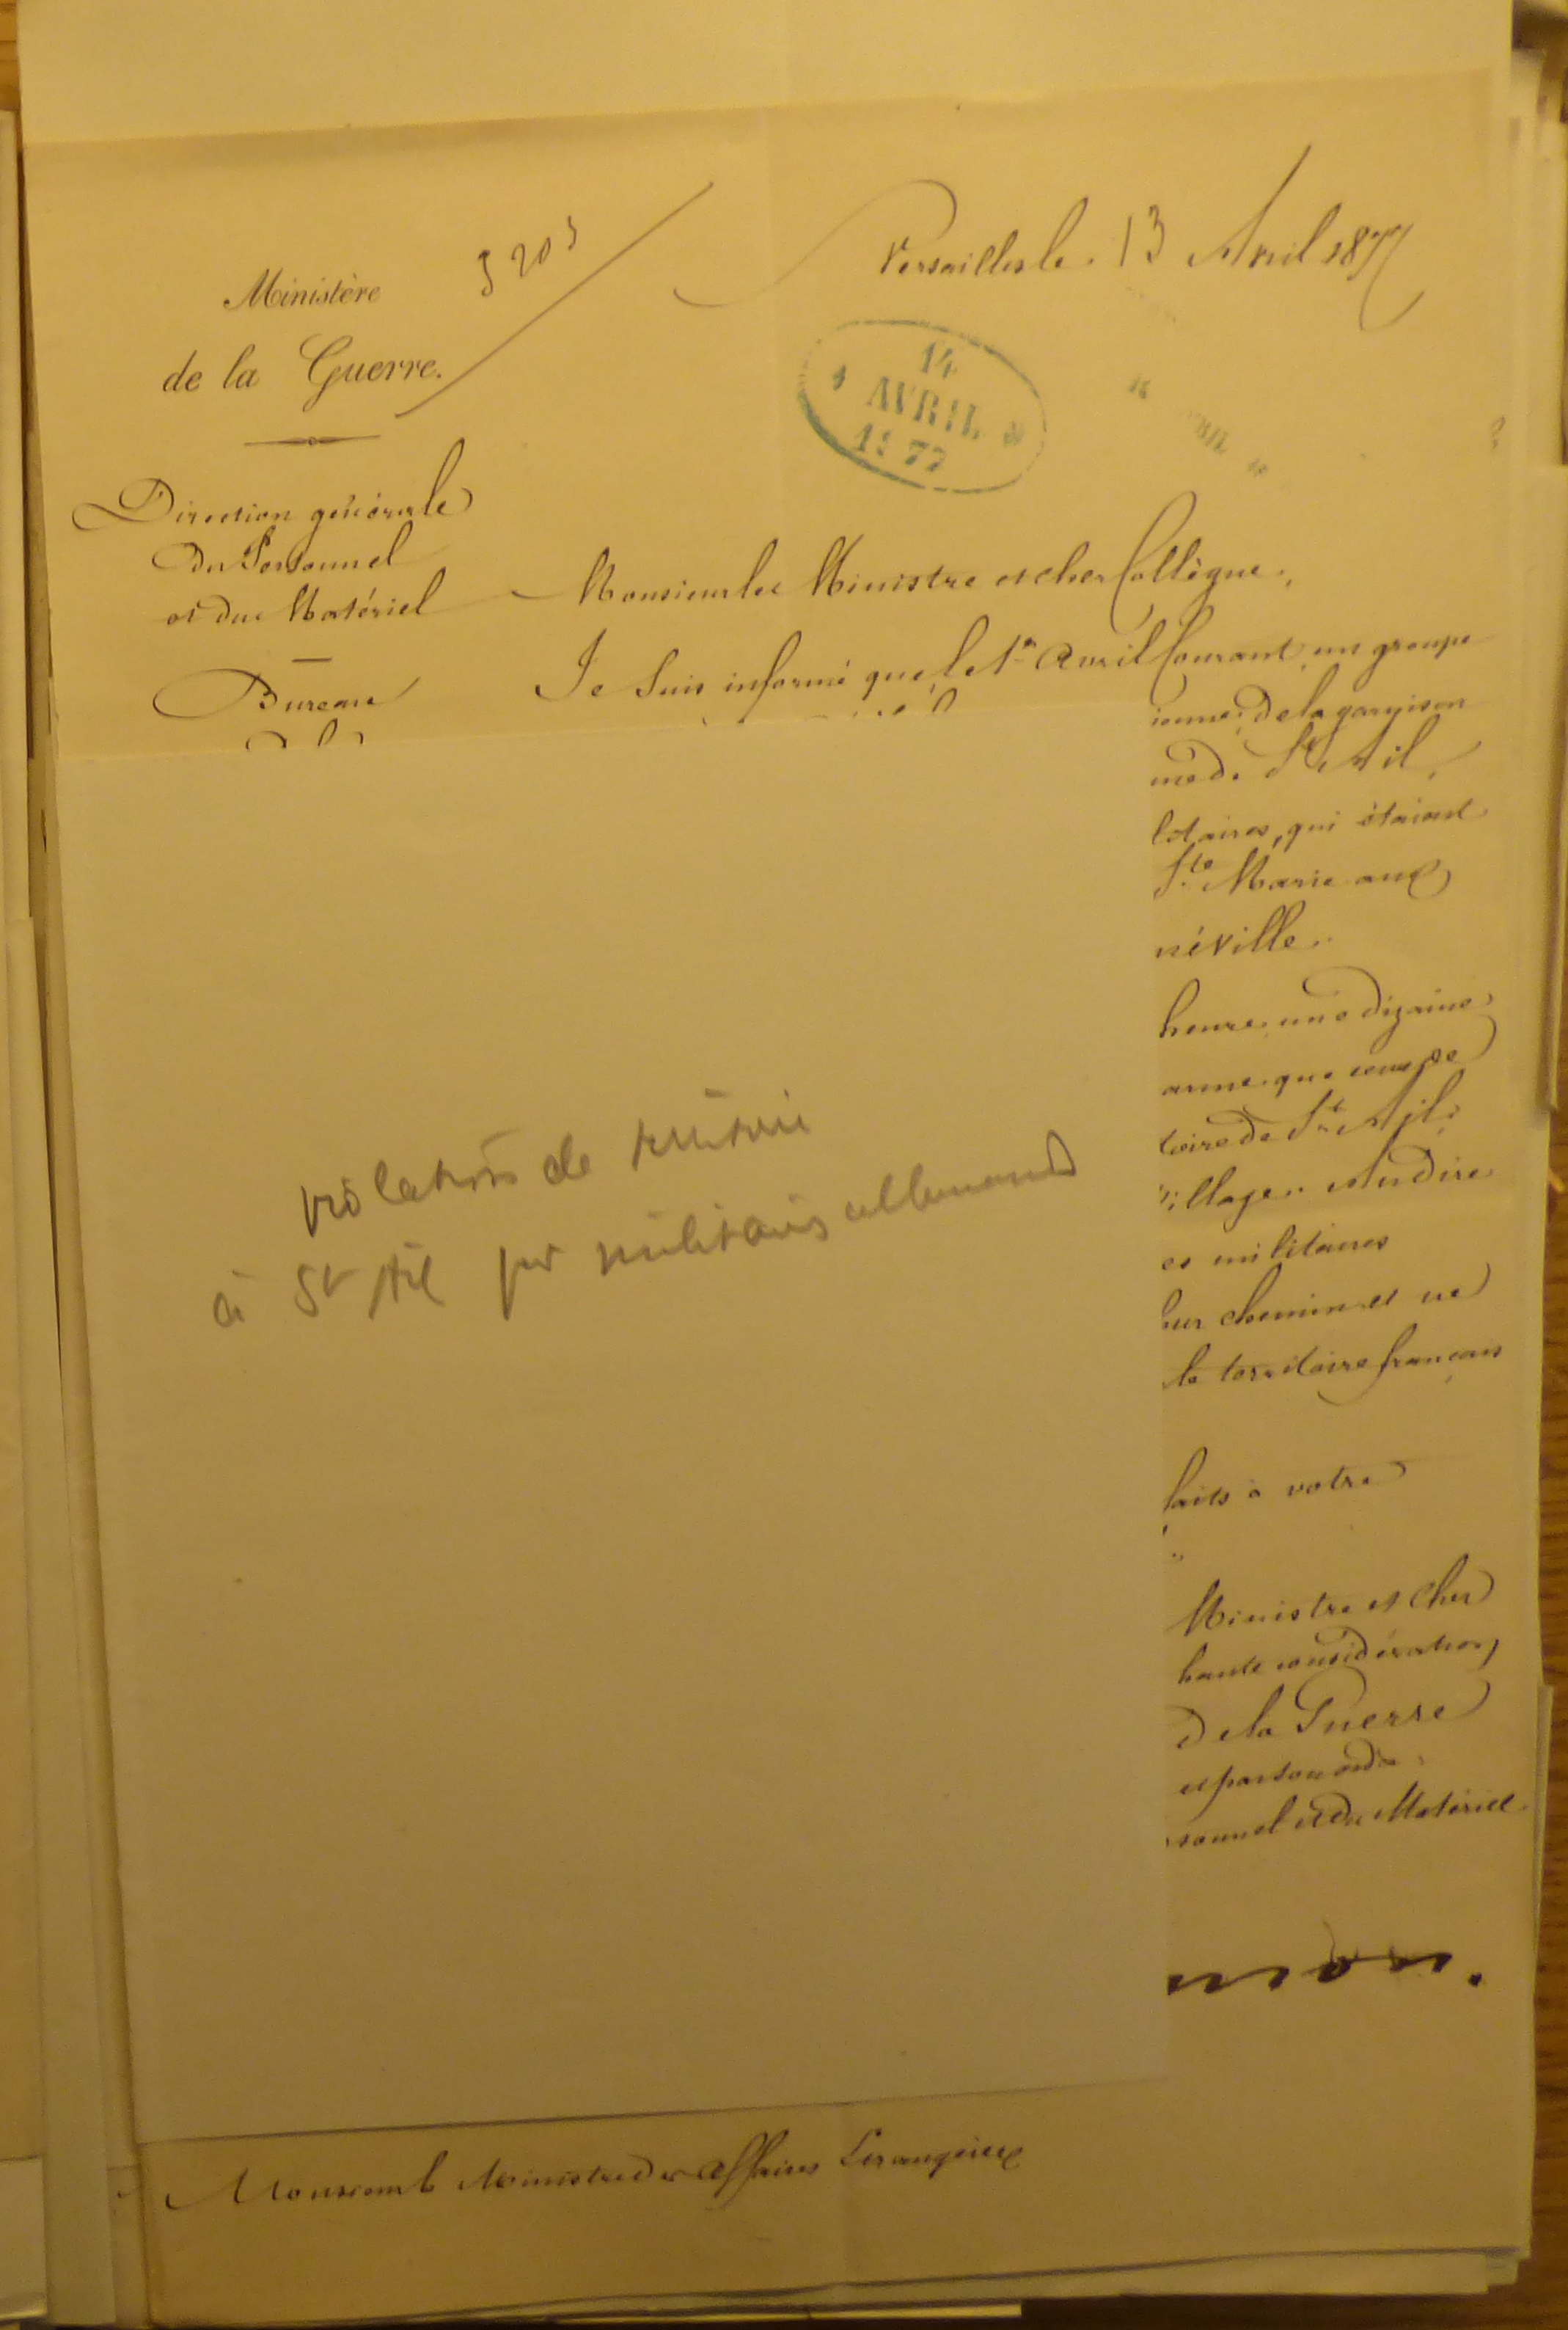 Ministère
de la Guerre.
Versailles le 13 Avril 1877
14
AVRIL
1877
Direction générale
du Personnel
et du Matériel
Bureau
Monsieur le Ministre et cher Collègue,
Je suis informé que, le 1er Avril Courant, un groupe
de la garnison
de St Ail,
litaires, qui étaient
Ste Marie aux
néville.
heure une dizaine
arme que
toire de St Ail
illage. Au dire
es militaires
eur chemin et
le territoire français
faits à votre
Ministre et Cher
haute considération,
de la Guerre
et par son ordre
sonnel et du Matériel
violation de territoire
à St Ail par militaires allemands
Monsieur le Ministre des Affaires Etrangères